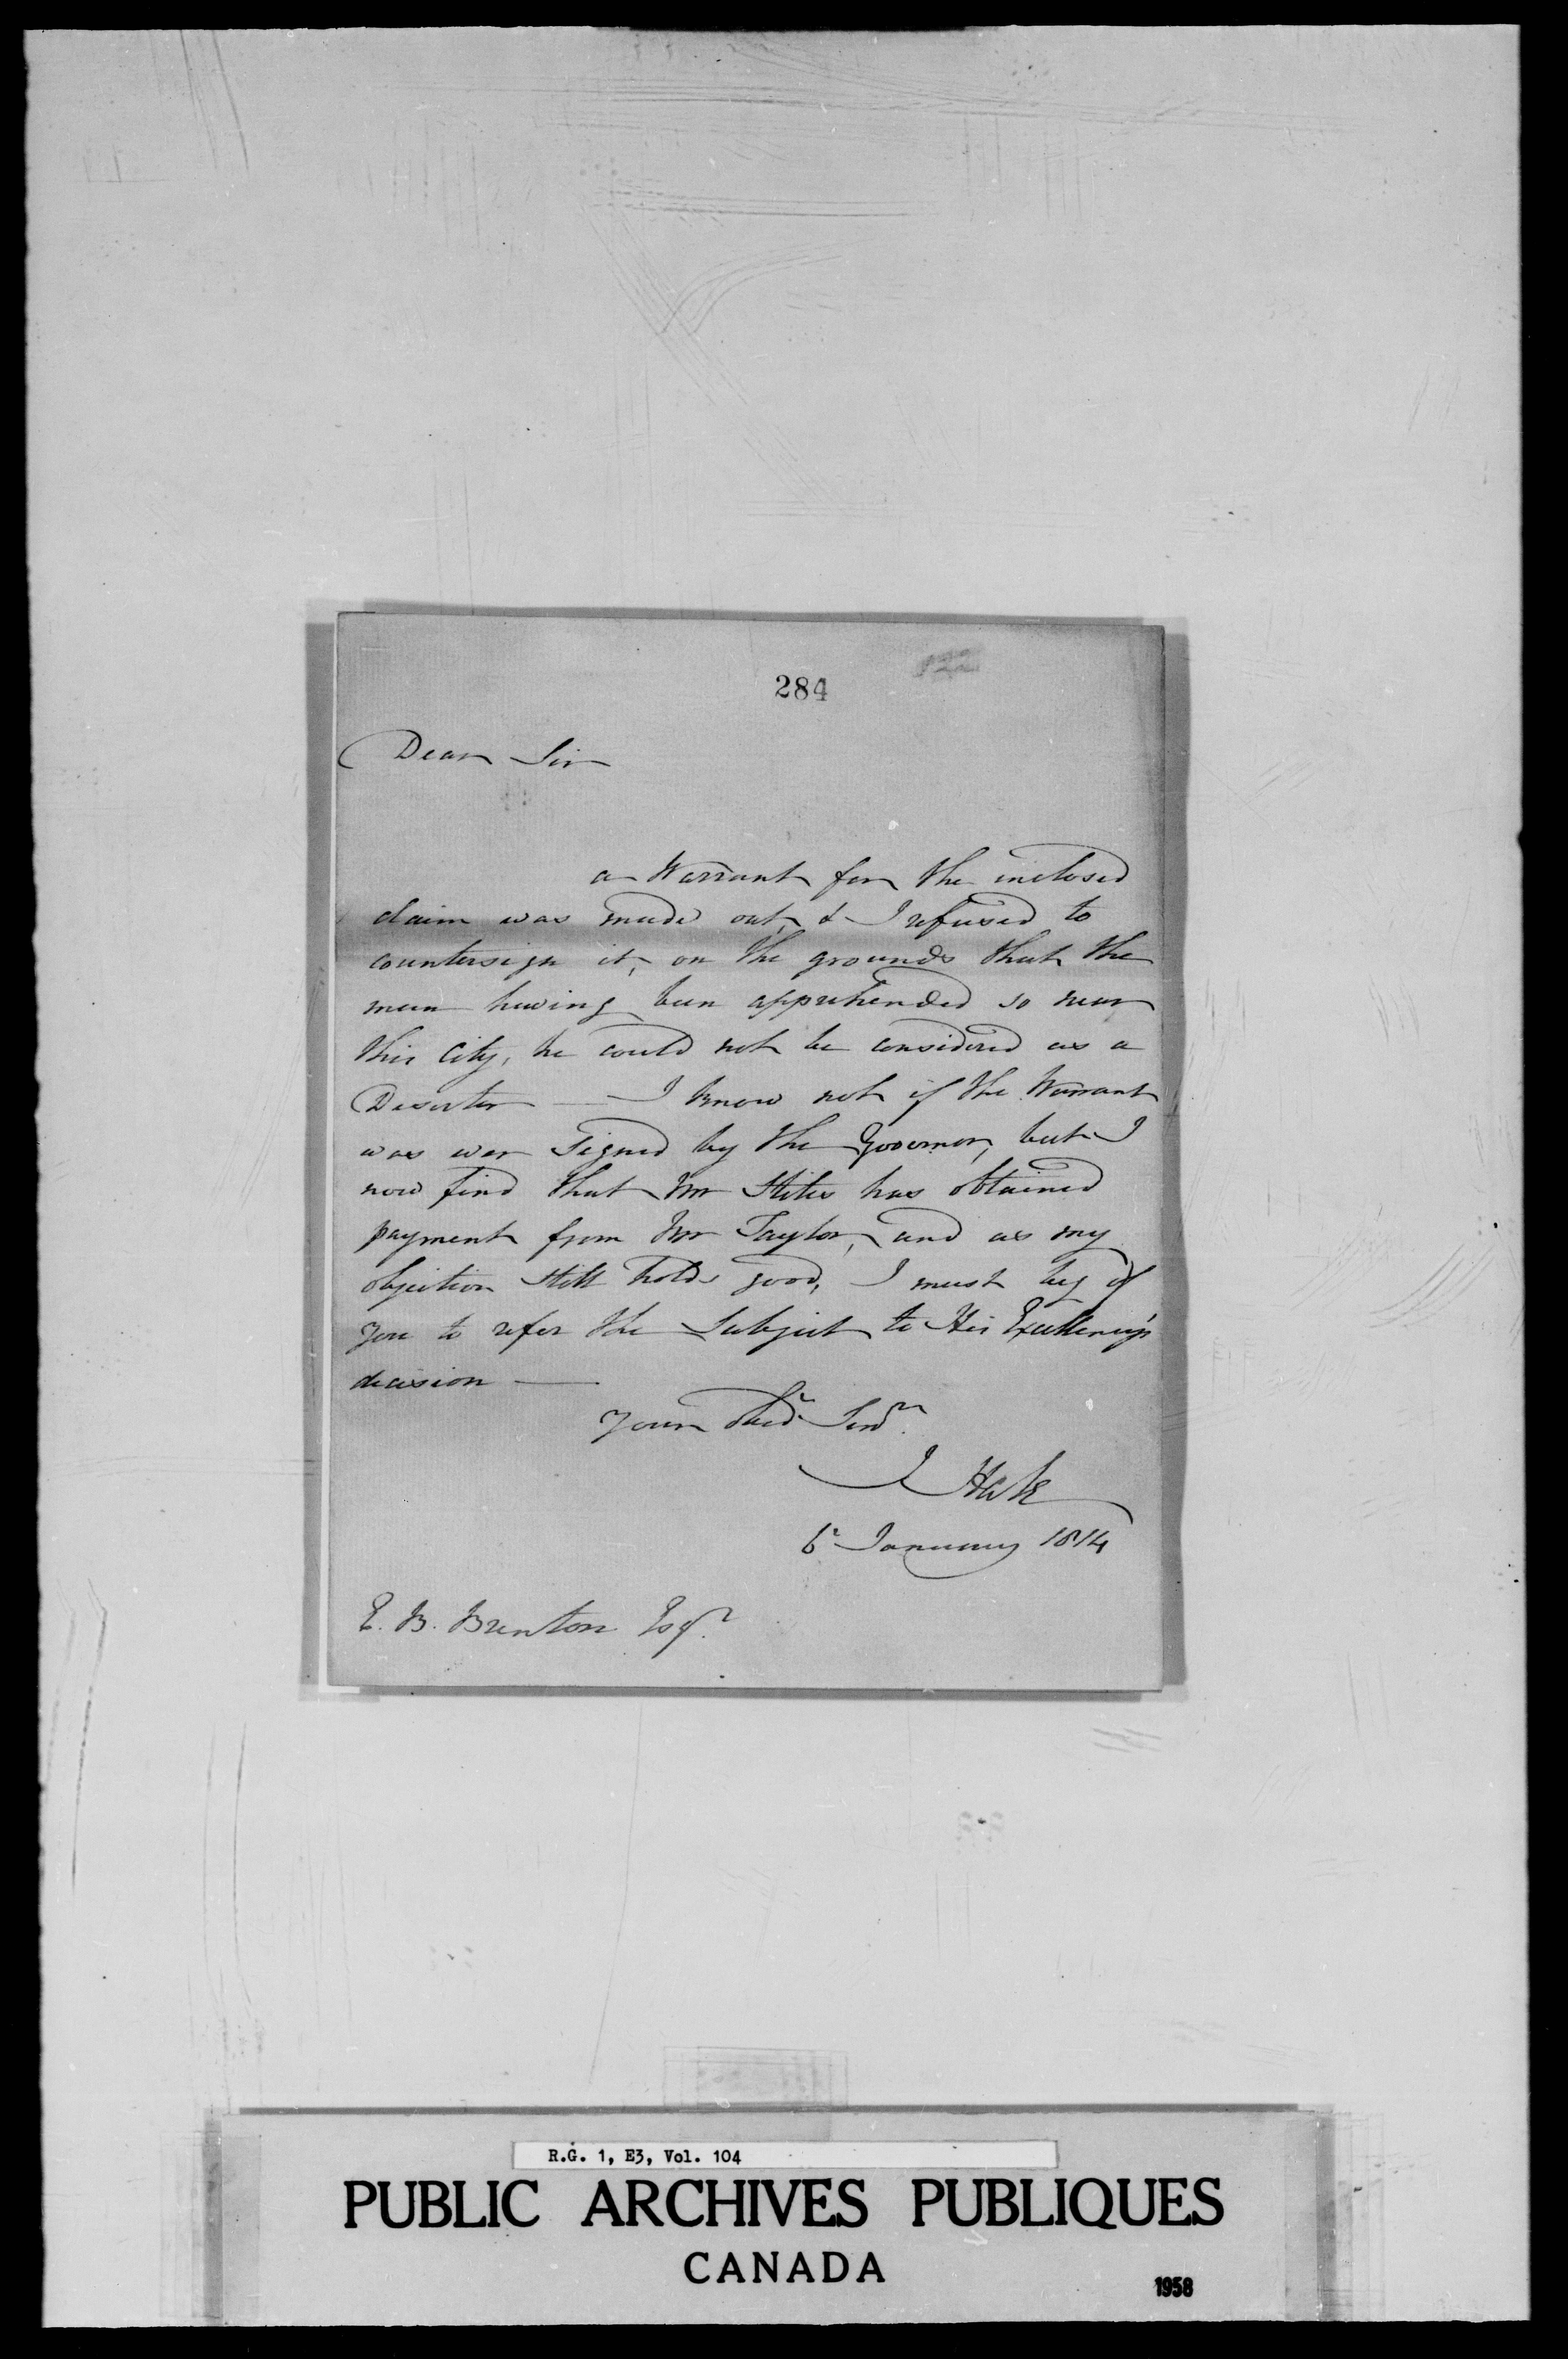 284
Dear Sir
a Warrant for the inclosed
claim was made out, & I refused to
countersign it, on the grounds that the
man having been apprehended so near
this City, he could not be considered as a
Deserter — I know not if the Warrant
was ever signed by the Governor, but I
now find that Mr Stiles has obtained
payment from Mr Taylor, and as my
objection still holds good, I must beg of
you to refer the Subject to His Excellency's
decision —
Your Obedt Servt
J Hale
6 January 1814
E. B. Brenton Esqr
R.G. 1, E3, Vol. 104
PUBLIC ARCHIVES PUBLIQUES
CANADA
1958